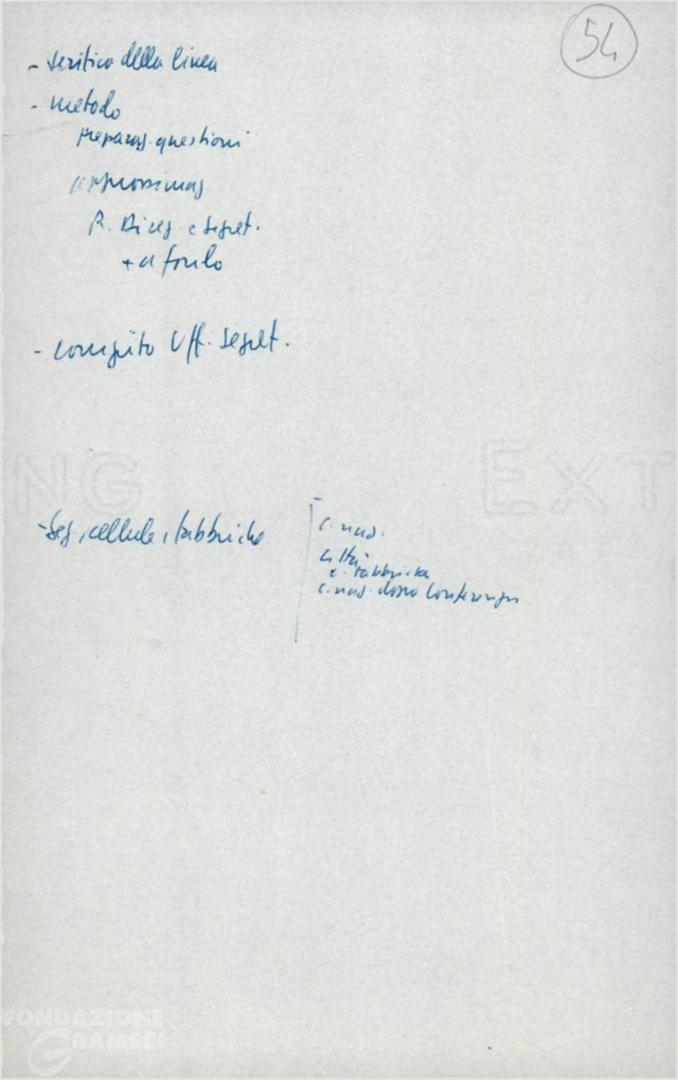 54
- verifica della linea
- metodo
preparaz. questioni
approssimaz
R. Direz. e segret.
+ a fondo
- compito Uff. Segret.
NG EXT
- Sez, cellule, fabbriche
c. naz.
città
c. fabbrica
c. naz. dopo Conferenza
FONDAZIONE
GRAMSCI